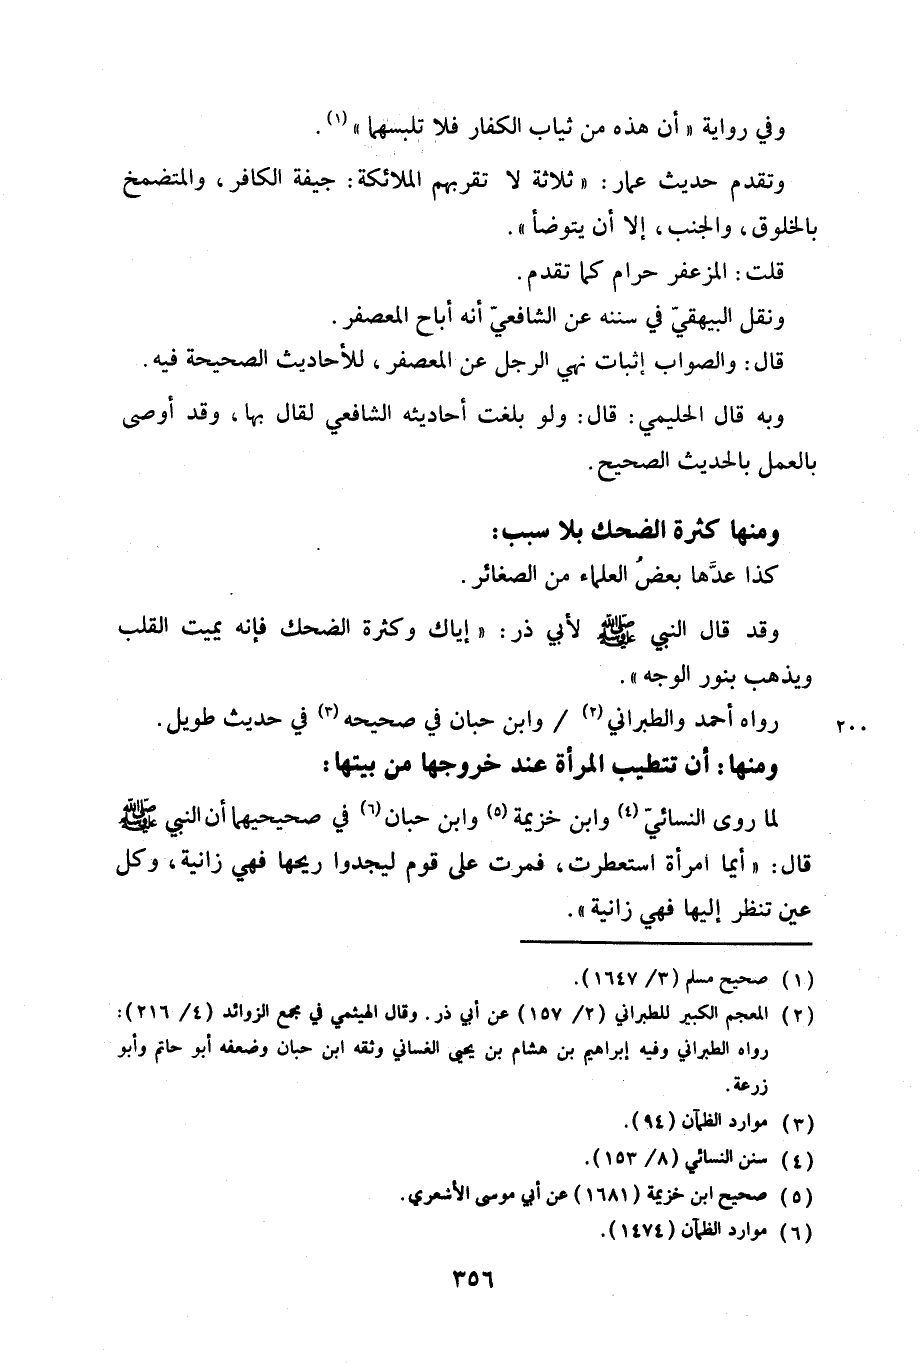 وفي رواية « أن هذه من ثياب الكفار فلا تلبسهما » (١) .
وتقدم حديث عمار : « ثلاثة لا تقربهم الملائكة : جيفة الكافر ، والمتضمخ
بالخلوق ، والجنب ، إلا أن يتوضأ » .
قلت : المزعفر حرام كما تقدم .
ونقل البيهقيّ في سننه عن الشافعيّ أنه أباح المعصفر .
قال : والصواب إثبات نهي الرجل عن المعصفر ، للأحاديث الصحيحة فيه .
وبه قال الحليمي : قال : ولو بلغت أحاديثه الشافعي لقال بها ، وقد أوصى
بالعمل بالحديث الصحيح .
ومنها كثرة الضحك بلا سبب :
كذا عدَّها بعضُ العلماء من الصغائر .
وقد قال النبي ﷺ لأبي ذر : « إياك وكثرة الضحك فإنه يميت القلب
ويذهب بنور الوجه » .
رواه أحمد والطبراني (٢) / وابن حبان في صحيحه (٣) في حديث طويل .
٢٠٠
ومنها : أن تتطيب المرأة عند خروجها من بيتها :
لما روى النسائيّ (٤) وابن خزيمة (٥) وابن حبان (٦) في صحيحيهما أن النبي ﷺ
قال : « أيما امرأة استعطرت ، فمرت على قوم ليجدوا ريحها فهي زانية ، وكل
عين تنظر إليها فهي زانية » .
(١) صحيح مسلم (٣/ ١٦٤٧) .
(٢) المعجم الكبير للطبراني (٢/ ١٥٧) عن أبي ذر . وقال الهيثمي في مجمع الزوائد (٤/ ٢١٦) :
رواه الطبراني وفيه إبراهيم بن هشام بن يحيى الغساني وثقه ابن حبان وضعفه أبو حاتم وأبو
زرعة .
(٣) موارد الظمآن (٩٤) .
(٤) سنن النسائي (٨/ ١٥٣) .
(٥) صحيح ابن خزيمة (١٦٨١) عن أبي موسى الأشعري .
(٦) موارد الظمآن (١٤٧٤) .
٣٥٦